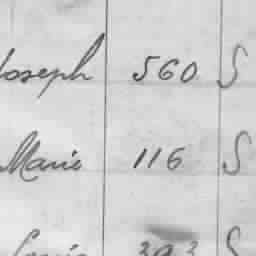 Joseph 560 S
Marie 116 S